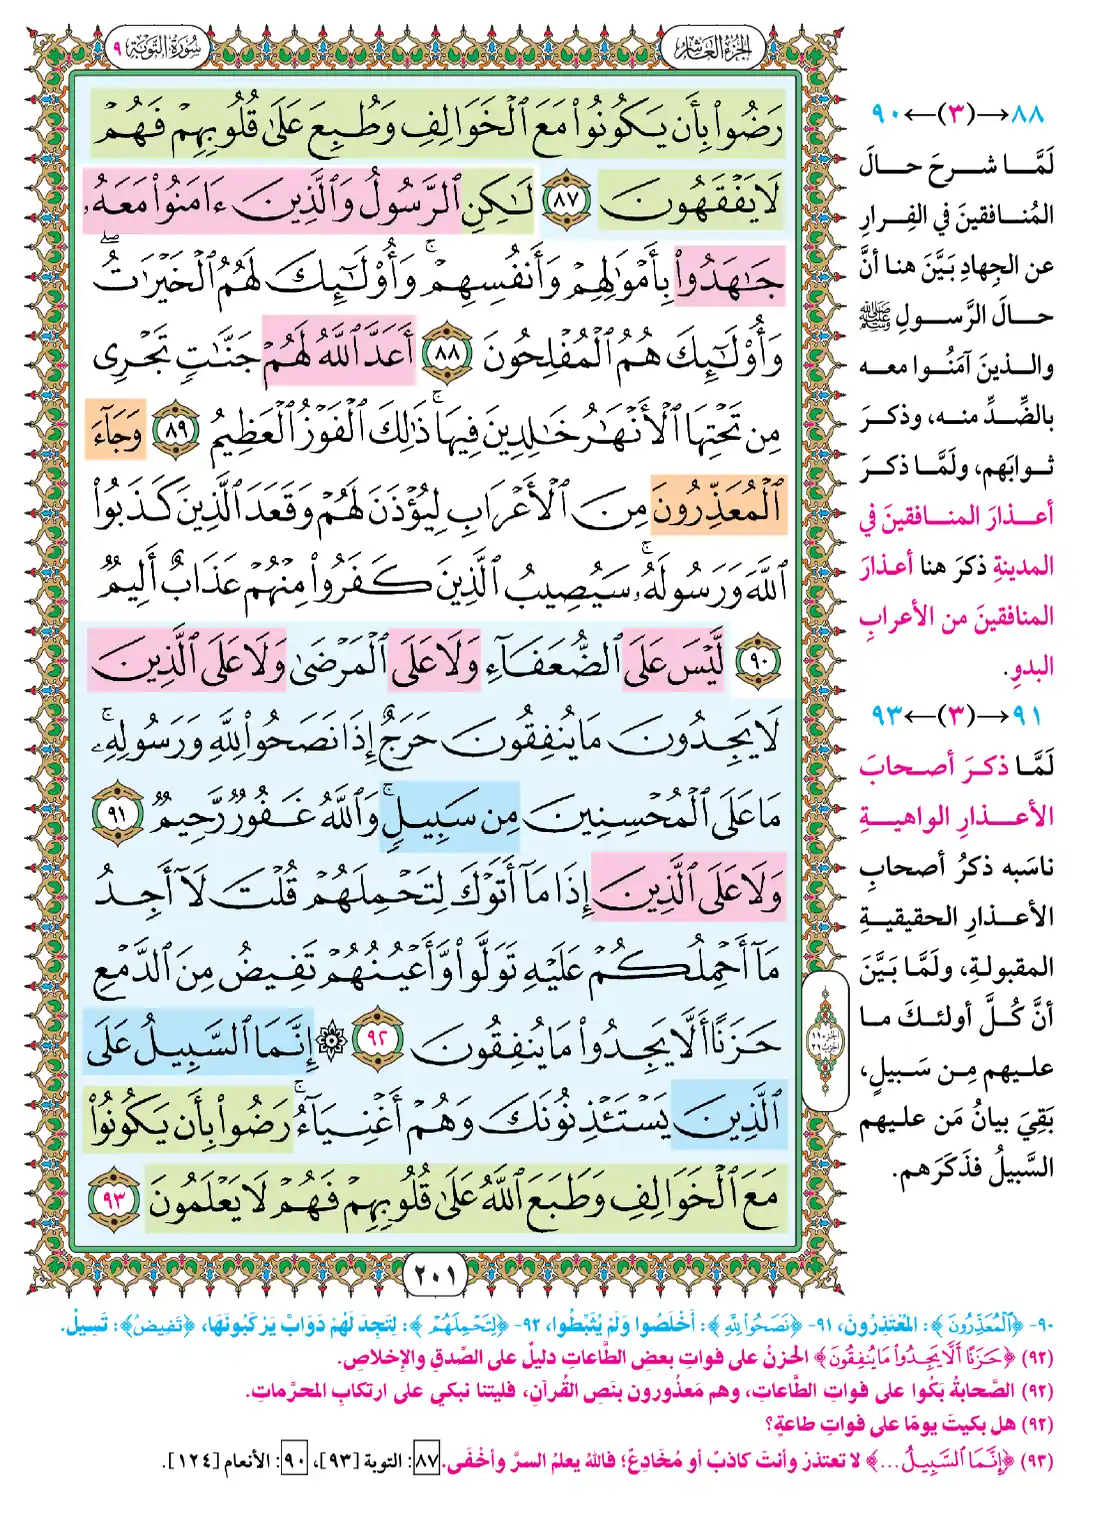 الجزء العاشر
سورة التوبة ٩
رَضُوا۟ بِأَن يَكُونُوا۟ مَعَ ٱلْخَوَالِفِ وَطُبِعَ عَلَىٰ قُلُوبِهِمْ فَهُمْ
لَا يَفْقَهُونَ ٨٧ لَٰكِنِ ٱلرَّسُولُ وَٱلَّذِينَ ءَامَنُوا۟ مَعَهُۥ
جَٰهَدُوا۟ بِأَمْوَٰلِهِمْ وَأَنفُسِهِمْ ۚ وَأُو۟لَٰٓئِكَ لَهُمُ ٱلْخَيْرَٰتُ ۖ
وَأُو۟لَٰٓئِكَ هُمُ ٱلْمُفْلِحُونَ ٨٨ أَعَدَّ ٱللَّهُ لَهُمْ جَنَّٰتٍ تَجْرِى
مِن تَحْتِهَا ٱلْأَنْهَٰرُ خَٰلِدِينَ فِيهَا ۚ ذَٰلِكَ ٱلْفَوْزُ ٱلْعَظِيمُ ٨٩ وَجَآءَ
ٱلْمُعَذِّرُونَ مِنَ ٱلْأَعْرَابِ لِيُؤْذَنَ لَهُمْ وَقَعَدَ ٱلَّذِينَ كَذَبُوا۟
ٱللَّهَ وَرَسُولَهُۥ ۚ سَيُصِيبُ ٱلَّذِينَ كَفَرُوا۟ مِنْهُمْ عَذَابٌ أَلِيمٌ
٩٠ لَّيْسَ عَلَى ٱلضُّعَفَآءِ وَلَا عَلَى ٱلْمَرْضَىٰ وَلَا عَلَى ٱلَّذِينَ
لَا يَجِدُونَ مَا يُنفِقُونَ حَرَجٌ إِذَا نَصَحُوا۟ لِلَّهِ وَرَسُولِهِۦ ۚ
مَا عَلَى ٱلْمُحْسِنِينَ مِن سَبِيلٍ ۚ وَٱللَّهُ غَفُورٌ رَّحِيمٌ ٩١
وَلَا عَلَى ٱلَّذِينَ إِذَا مَآ أَتَوْكَ لِتَحْمِلَهُمْ قُلْتَ لَآ أَجِدُ
مَآ أَحْمِلُكُمْ عَلَيْهِ تَوَلَّوا۟ وَّأَعْيُنُهُمْ تَفِيضُ مِنَ ٱلدَّمْعِ
حَزَنًا أَلَّا يَجِدُوا۟ مَا يُنفِقُونَ ٩٢ ۞ إِنَّمَا ٱلسَّبِيلُ عَلَى
ٱلَّذِينَ يَسْتَـْٔذِنُونَكَ وَهُمْ أَغْنِيَآءُ ۚ رَضُوا۟ بِأَن يَكُونُوا۟
مَعَ ٱلْخَوَالِفِ وَطَبَعَ ٱللَّهُ عَلَىٰ قُلُوبِهِمْ فَهُمْ لَا يَعْلَمُونَ ٩٣
٢٠١
٨٨→(٣)←٩٠
لَمَّا شرحَ حالَ
المُنافقينَ في الفِرارِ
عن الجهادِ بَيَّنَ هنا أنَّ
حالَ الرَّسولِ ﷺ
والذينَ آمَنُوا معه
بالضِّدِّ منه، وذكرَ
ثوابَهم، ولَمَّا ذكرَ
أعذارَ المنافقينَ في
المدينةِ ذكرَ هنا أعذارَ
المنافقينَ من الأعرابِ
البدوِ.
٩١→(٣)←٩٣
لَمَّا ذكرَ أصحابَ
الأعذارِ الواهيةِ
ناسَبه ذكرُ أصحابِ
الأعذارِ الحقيقيةِ
المقبولةِ، ولَمَّا بَيَّنَ
أنَّ كُلَّ أولئكَ ما
عليهم مِن سَبيلٍ،
بَقِيَ بيانُ مَن عليهم
السَّبيلُ فذَكَرَهم.
٩٠- ﴿ٱلْمُعَذِّرُونَ﴾: المُعْتَذِرُونَ، ٩١- ﴿نَصَحُوا۟ لِلَّهِ﴾: أَخْلَصُوا وَلَمْ يُثَبِّطُوا، ٩٢- ﴿لِتَحْمِلَهُمْ﴾: لِتَجِدَ لَهُمْ دَوَابَّ يَرْكَبُونَهَا، ﴿تَفِيضُ﴾: تَسِيلُ.
(٩٢) ﴿حَزَنًا أَلَّا يَجِدُوا۟ مَا يُنفِقُونَ﴾ الحزنُ على فواتِ بعضِ الطَّاعاتِ دليلٌ على الصِّدقِ والإخلاصِ.
(٩٢) الصَّحابةُ بَكُوا على فواتِ الطَّاعاتِ، وهم مَعذُورون بنَصِ القُرآنِ، فليتنا نبكي على ارتكابِ المحرَّماتِ.
(٩٢) هل بكيتَ يومًا على فواتِ طاعةٍ؟
(٩٣) ﴿إِنَّمَا ٱلسَّبِيلُ...﴾ لا تعتذرْ وأنتَ كاذبٌ أو مُخَادِعٌ؛ فاللهُ يعلمُ السرَّ وأخْفَى. ٨٧: التوبة [٩٣]، ٩٠: الأنعام [١٢٤].